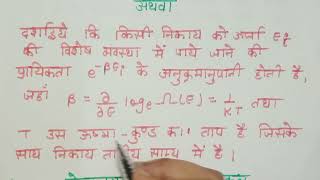 अथवा
दर्शाइये कि किसी निकाय को ऊर्जा Eᵢ
की विशेष अवस्था में पाये जाने की
प्रायिकता e^{-βEᵢ} के अनुक्रमानुपाती होती है,
जहाँ β = ∂/∂E loge Ω(E) = 1/KT तथा
T उस ऊष्मा-कुण्ड का ताप है जिसके
साथ निकाय तापीय साम्य में है।